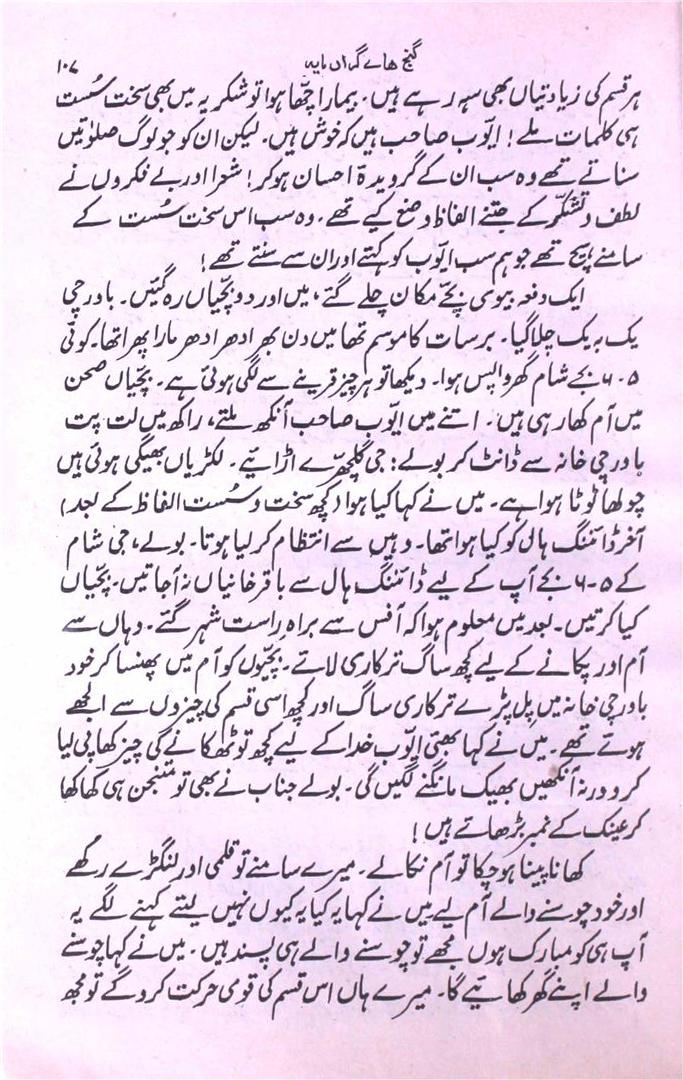 گنج ھاے گراں مایہ
۱۰۷
ہر قسم کی زیادتیاں بھی سہہ رہے ہیں۔ بیمار اچھا ہوا تو شکریہ میں بھی سخت سُست
ہی کلمات ملے! ایّوب صاحب ہیں کہ خوش ہیں۔ لیکن ان کو جو لوگ صلوٰتیں
سناتے تھے وہ سب ان کے گرویدۂ احسان ہو کر! شعرا اور بے فکروں نے
لطف و تشکّر کے جتنے الفاظ وضع کیے تھے۔ وہ سب اس سخت سُست کے
سامنے ہیچ تھے جو ہم سب ایّوب کو کہتے اور ان سے سنتے تھے!
ایک دفعہ بیوی بچّے مکان چلے گئے، میں اور دو بچّیاں رہ گئیں۔ باورچی
یک بہ یک چلا گیا۔ برسات کا موسم تھا میں دن بھر ادھر ادھر مارا پھرا تھا۔ کوئی
۵-۶ بجے شام گھر واپس ہوا۔ دیکھا تو ہر چیز قرینے سے لگی ہوئی ہے۔ بچّیاں صحن
میں آم کھا رہی ہیں۔ اتنے میں ایّوب صاحب آنکھ ملتے، راکھ میں لت پت
باورچی خانہ سے ڈانٹ کر بولے: جی گلچھرّے اڑائیے۔ لکڑیاں بھیگی ہوئی ہیں
چولھا ٹوٹا ہوا ہے۔ میں نے کہا کیا ہوا (کچھ سخت و سُست الفاظ کے بعد)
آخر ڈائننگ ہال کو کیا ہوا تھا۔ وہیں سے انتظام کر لیا ہوتا۔ بولے، جی شام
کے ۵-۶ بجے آپ کے لیے ڈائننگ ہال سے باقر خانیاں نہ آ جاتیں۔ بچّیاں
کیا کرتیں۔ بعد میں معلوم ہوا کہ آفس سے براہ راست شہر گئے۔ وہاں سے
آم اور پکانے کے لیے کچھ ساگ ترکاری لائے۔ بچّیوں کو آم میں پھنسا کر خود
باورچی خانہ میں پل پڑے ترکاری ساگ اور کچھ اسی قسم کی چیزوں سے الجھے
ہوتے تھے۔ میں نے کہا بھئی ایّوب خدا کے لیے کچھ تو ٹھکانے کی چیز کھا پی لیا
کرو ورنہ آنکھیں بھیک مانگنے لگیں گی۔ بولے جناب نے بھی تو متنجن ہی کھا کھا
کر عینک کے نمبر بڑھائے ہیں!
کھانا پینا ہو چکا تو آم نکالے۔ میرے سامنے تو قلمی اور لنگڑے رکھے
اور خود چوسنے والے آم لیے میں نے کہا یہ کیا یہ کیوں نہیں لیتے کہنے لگے یہ
آپ ہی کو مبارک ہوں مجھے تو چوسنے والے ہی پسند ہیں۔ میں نے کہا چوسنے
والے اپنے گھر کھائیے گا۔ میرے ہاں اس قسم کی قومی حرکت کرو گے تو مجھ